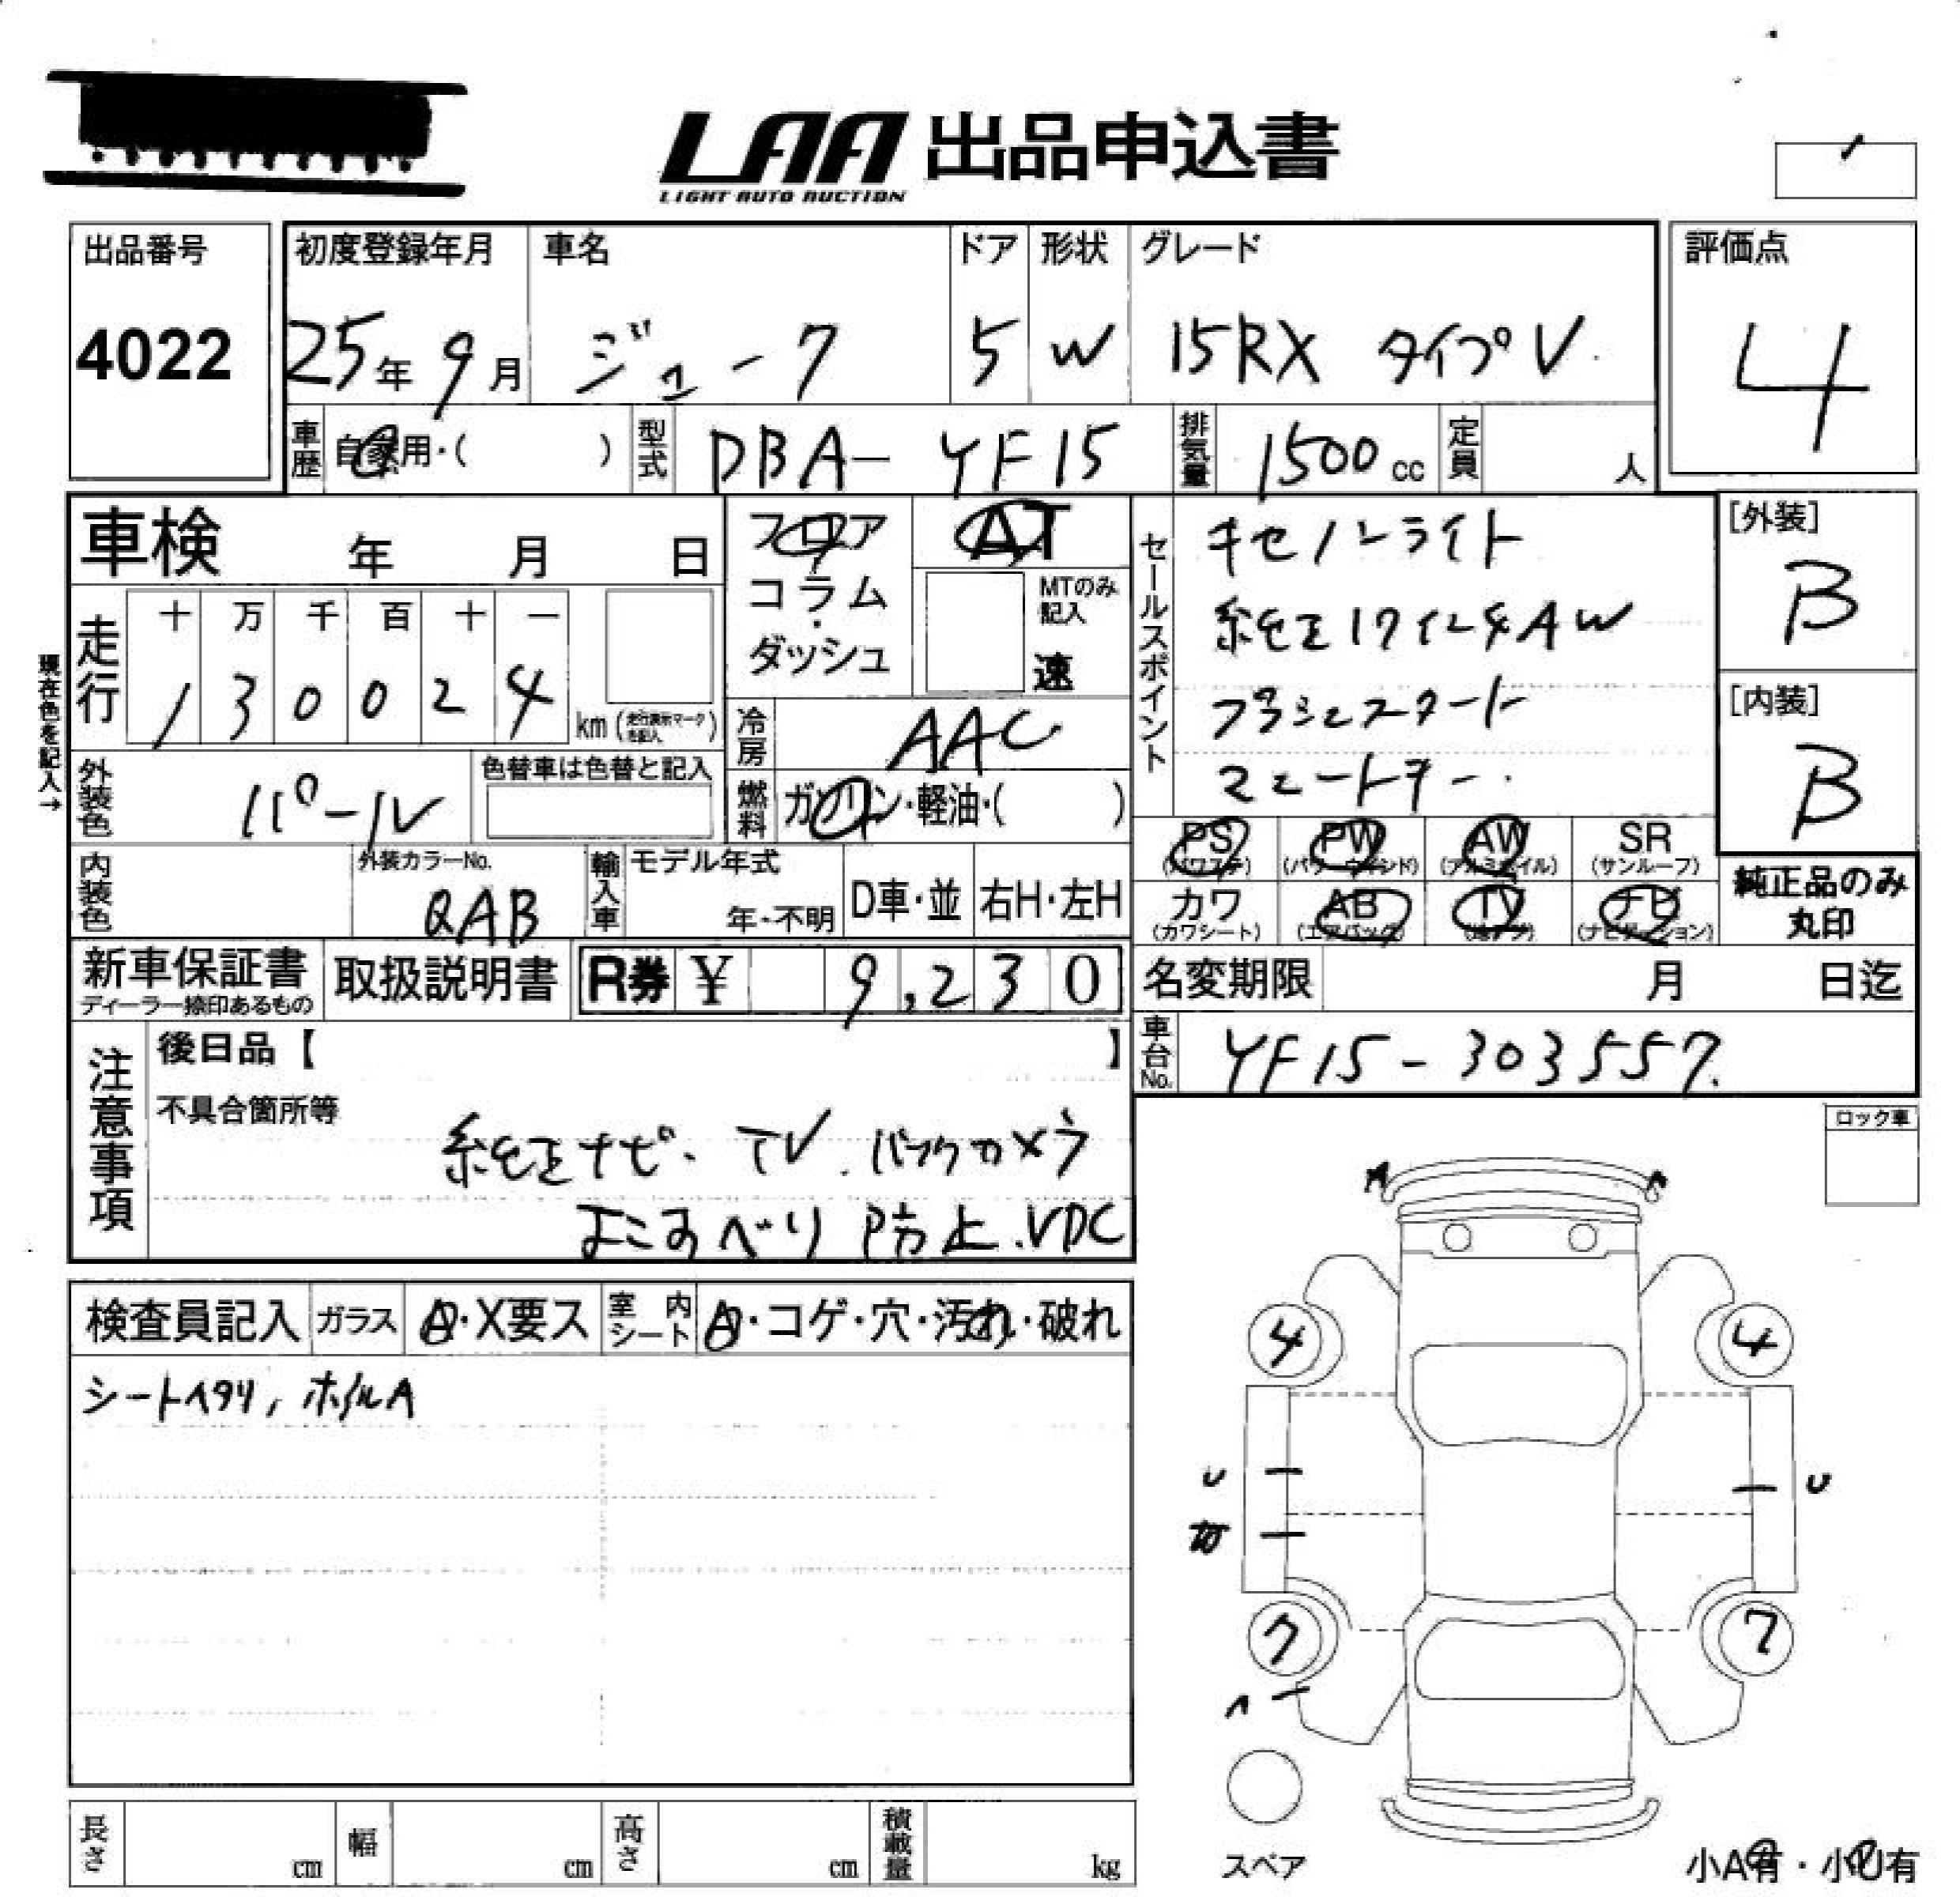 LAA 出品申込書
LIGHT AUTO AUCTION
出品番号
4022
初度登録年月 車名 ドア 形状 グレード
25年 9月 ジューク 5 W 15RX タイプV
評価点
4
車歴 自家用・( ) 型式 DBA-YF15 排気量 1500cc 定員 人
車検 年 月 日
フロア
コラム
・
ダッシュ
AT
MTのみ記入
速
セールスポイント
キセノンライト
純正17インチAW
プッシュスタート
[外装]
B
[内装]
B
現在色を記入→
走行 十 万 千 百 十 一
1 3 0 0 2 4
km (走行表示マークを記入)
冷房 AAC
燃料 ガソリン・軽油・( )
外装色 パール 色替車は色替と記入
内装色 外装カラーNo. QAB
輸入車 モデル年式 年・不明 D車・並 右H・左H
PS (パワステ) PW (パワーウィンド) AW (アルミホイル) SR (サンルーフ)
カワ (カワシート) AB (エアバッグ) TV (地デジ) ナビ (ナビゲーション)
純正品のみ丸印
新車保証書
ディーラー捺印あるもの
取扱説明書 R券 ¥ 9,230
名変期限 月 日迄
車台No. YF15-303557
注意事項
後日品【 】
不具合箇所等
純正ナビ. TV. バックカメラ
よこすべり防止.VDC
ロック車
検査員記入 ガラス A・X要ス 室内シート A・コゲ・穴・汚れ・破れ
シートヘタリ, ホイルA
A A
4 4
U U
7 7
スペア
小A有・小U有
長さ cm 幅 cm 高さ cm 積載量 kg